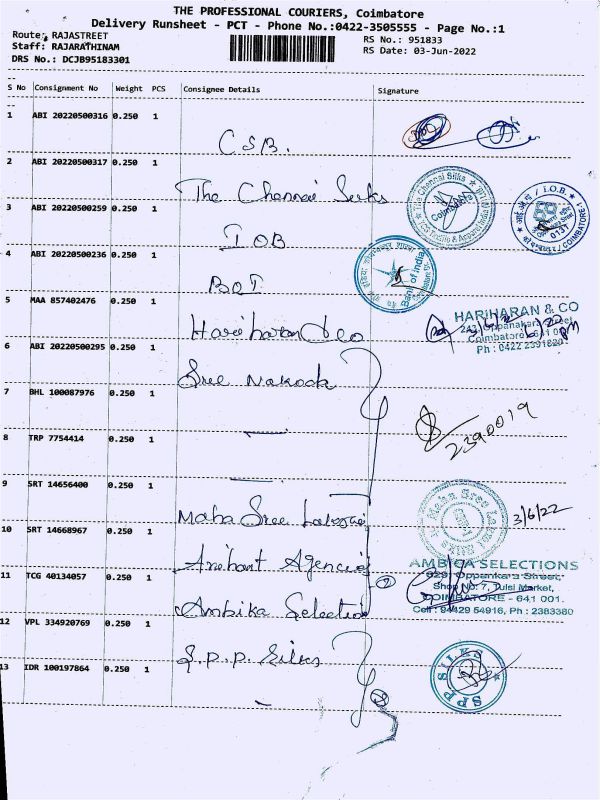 THE PROFESSIONAL COURIERS, Coimbatore
Delivery Runsheet - PCT - Phone No.:0422-3505555 - Page No.:1
Route: RAJASTREET
RS No.: 951833
Staff: RAJARATHINAM
RS Date: 03-Jun-2022
DRS No.: DCJB95183301
S No Consignment No Weight PCS Consignee Details Signature
1 ABI 20220500316 0.250 1
CSB.
2 ABI 20220500317 0.250 1
The Chennai Silks
The Chennai Silks
Coimbatore
3 ABI 20220500259 0.250 1
IOB
I.O.B.
0137
COIMBATORE-1
4 ABI 20220500236 0.250 1
BOI
Bank of India
5 MAA 857402476 0.250 1
Hariharan & co
HARIHARAN & CO
Oppanakara Street
Coimbatore - 641 001
Ph : 0422 2391820
6 ABI 20220500295 0.250 1
Sree
7 BHL 100087976 0.250 1
2390019
8 TRP 7754414 0.250 1
9 SRT 14656400 0.250 1
Maha Sree
Maha Sree
3/6/22
10 SRT 14668967 0.250 1
Arihant Agencies
AMBICA SELECTIONS
829, Oppankara Street,
Shop No: 7, Tulsi Market,
COIMBATORE - 641 001.
Cell : 94429 54916, Ph : 2383380
11 TCG 40134057 0.250 1
Ambika Selection
12 VPL 334920769 0.250 1
S.P.P. Silks
SPP SILKS
13 IDR 100197864 0.250 1